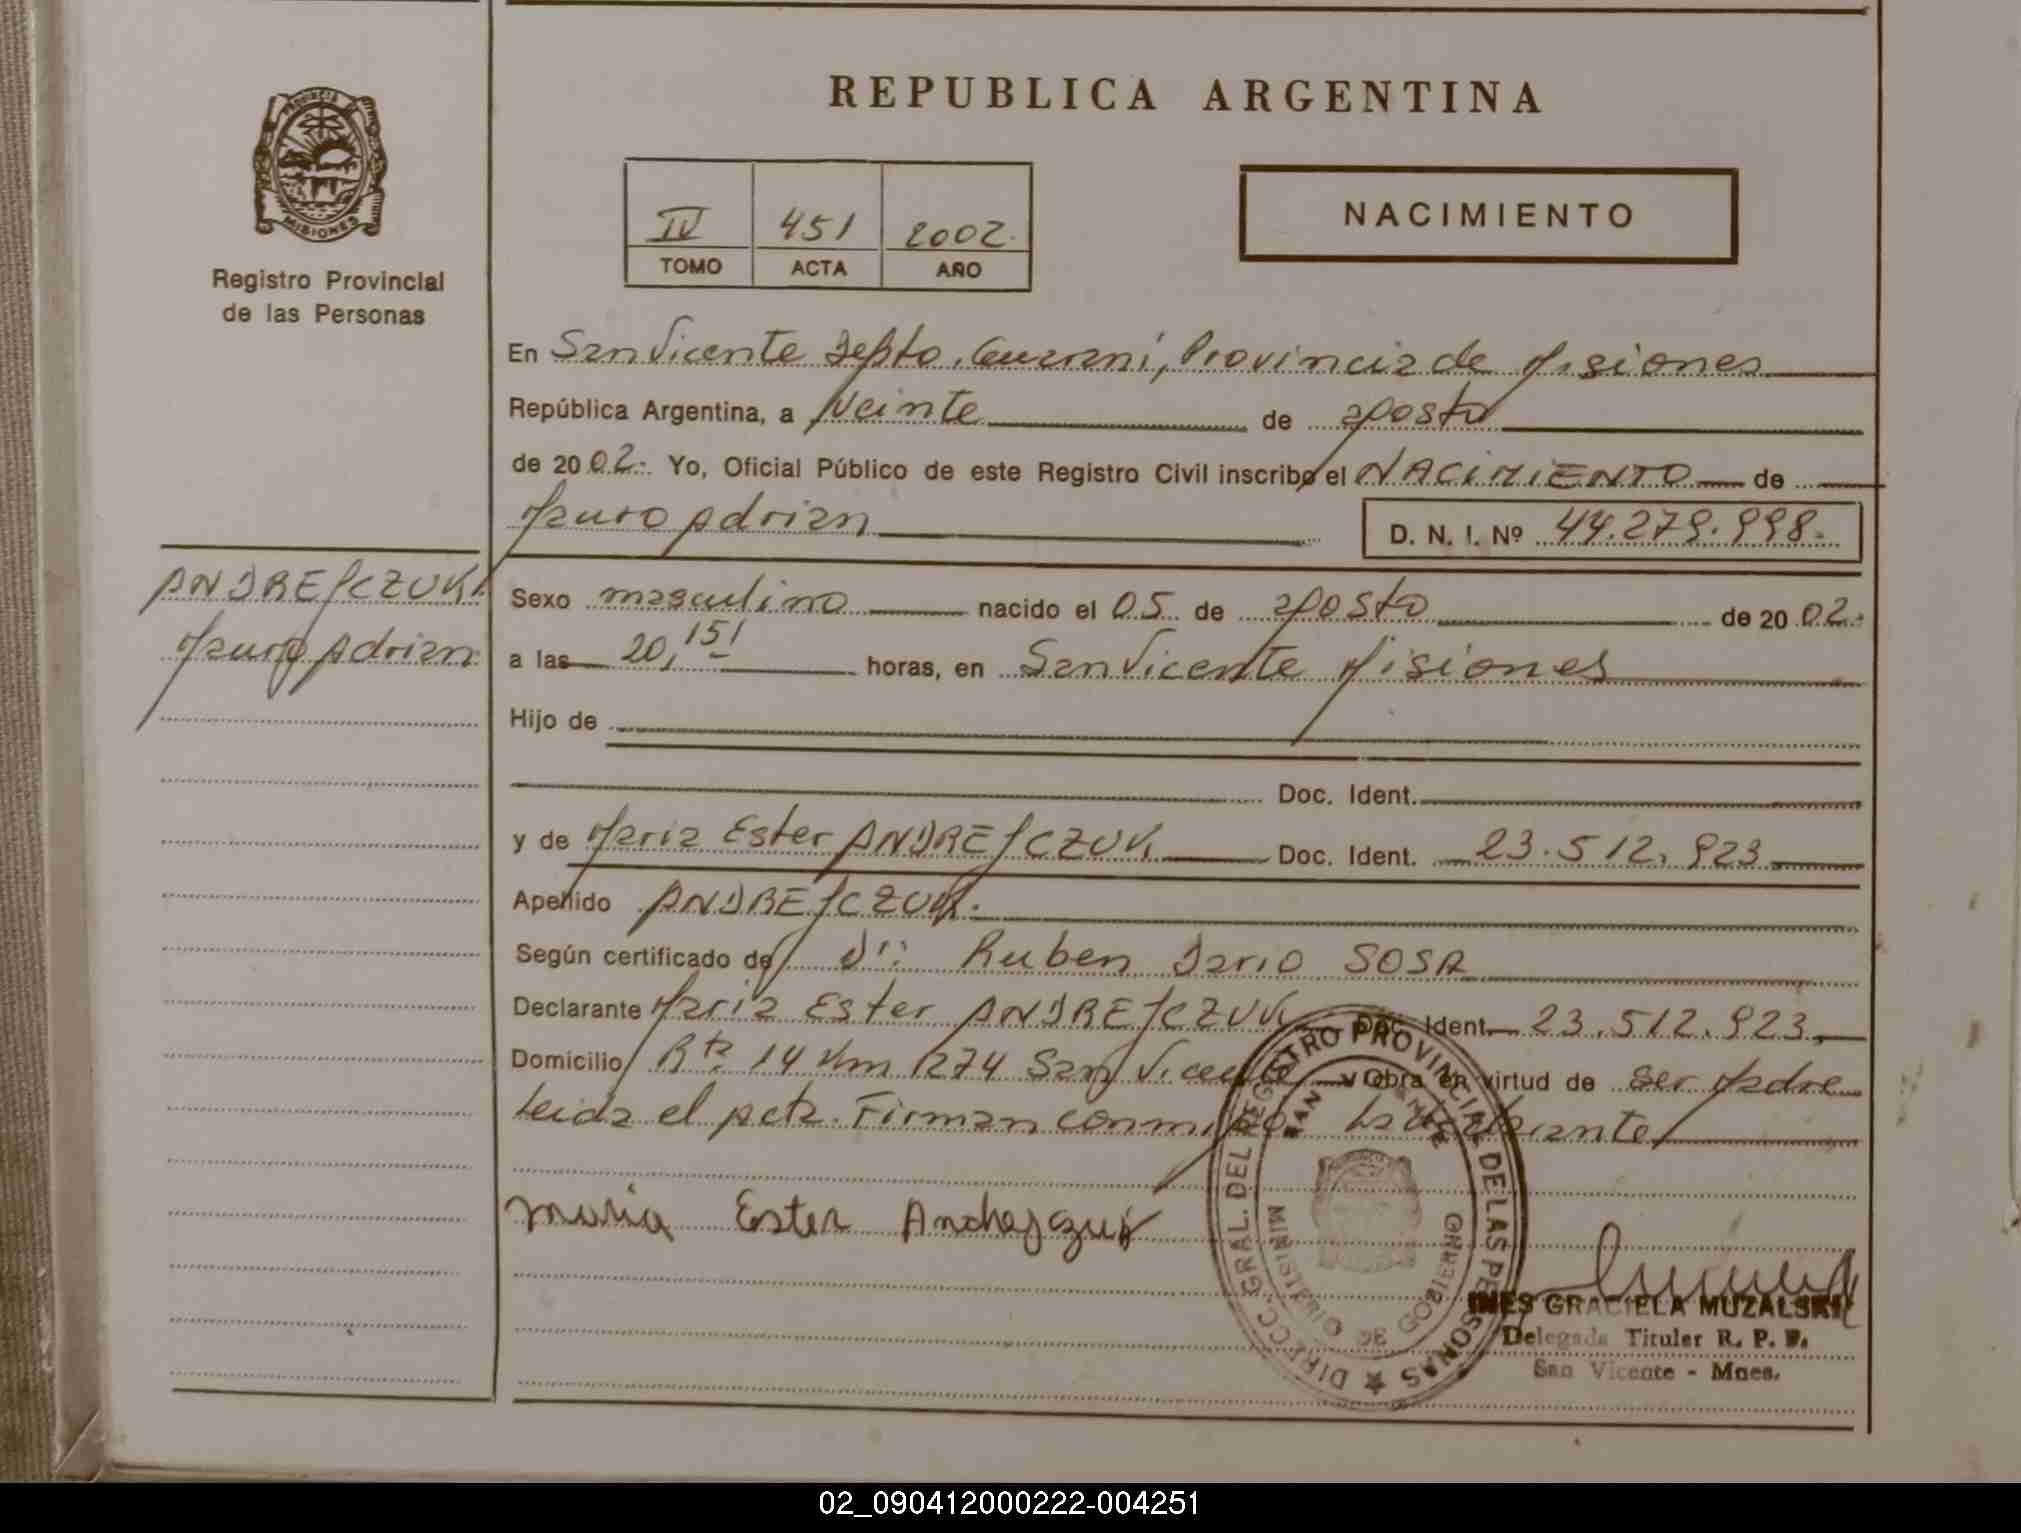 REPUBLICA ARGENTINA
PROVINCIA DE
MISIONES
Registro Provincial
de las Personas
IV 451 2002.
TOMO ACTA AÑO
NACIMIENTO
En San Vicente Depto. Guaraní, Provincia de Misiones
República Argentina, a Veinte de agosto
de 2002.- Yo, Oficial Público de este Registro Civil inscribo el NACIMIENTO de
Mauro Adrian D. N. I. Nº 44.279.998.-
ANDREJCZUK
Mauro Adrian
Sexo masculino nacido el 05 de agosto de 2002.-
a las 20,15 horas, en San Vicente Misiones
Hijo de
Doc. Ident.
y de Maria Ester ANDREJCZUK Doc. Ident. 23.512.923
Apellido ANDREJCZUK.
Según certificado de Dr: Ruben Dario SOSA
Declarante Maria Ester ANDREJCZUK Doc. Ident. 23.512.923
Domicilio Rta 14 Km 1274 San Vicente y Obra en virtud de ser Madre
Leida el Acta. Firman conmigo La declarante
Maria Ester Andrejczuk
DIRECC. GRAL. DEL REGISTRO PROVINCIAL DE LAS PERSONAS
SAN VICENTE
MINISTERIO DE GOBIERNO
INES GRACIELA MUZALSKI
Delegada Titular R. P. P.
San Vicente - Mnes.
02_090412000222-004251